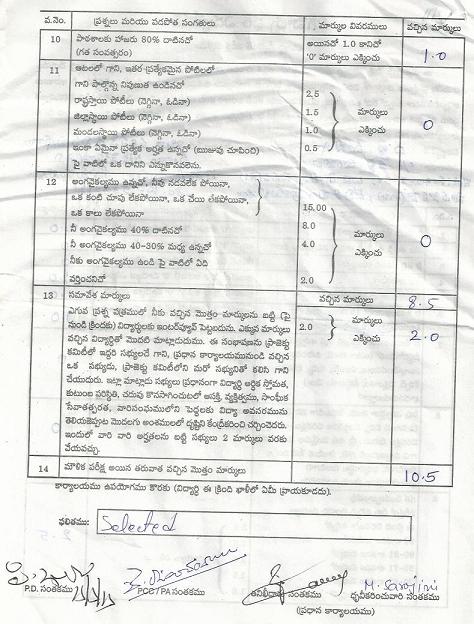 వ.నెం. ప్రశ్నలు మరియు వడపోత సంగతులు మార్కుల వివరములు వచ్చిన మార్కులు
10 పాఠశాలకు హాజరు 80% దాటినచో అయినచో 1.0 కానిచో 1.0
(గత సంవత్సరం) '0' మార్కులు ఎక్కించు
11 ఆటలలో గాని, ఇతర ప్రత్యేకమైన పోటీలలో
గాని పాల్గొన్న నిపుణత ఉండినచో
రాష్ట్రస్థాయి పోటీలు (నెగ్గినా, ఓడినా) 2.5
జిల్లాస్థాయి పోటీలు (నెగ్గినా, ఓడినా) 1.5 మార్కులు
మండలస్థాయి పోటీలు (నెగ్గినా, ఓడినా) 1.0 ఎక్కించు 0
ఇంకా ఏమైనా ప్రత్యేక అర్హత ఉన్నచో (ఋజువు చూపించి) 0.5
పై వాటిలో ఒక దానిని ఎన్నుకొనవలెను.
12 అంగవైకల్యము ఉన్నచో, నీవు నడవలేక పోయినా,
ఒక కంటి చూపు లేకపోయినా, ఒక చేయి లేకపోయినా,
ఒక కాలు లేకపోయినా 15.00
నీ అంగవైకల్యము 40% దాటినచో 8.0 మార్కులు
నీ అంగవైకల్యము 40-30% మధ్య ఉన్నచో 4.0 ఎక్కించు 0
నీకు అంగవైకల్యము ఉండి పై వాటిలో ఏది
వర్తించనిచో 2.0
13 సమావేశ మార్కులు వచ్చిన మార్కులు 8.5
ఎగువ ప్రశ్న పత్రములో నీకు వచ్చిన మొత్తం మార్కులను బట్టి (పై
నుండి క్రిందకు) విద్యార్థులకు ఇంటర్వ్యూవ్ పెట్టబడును. ఎక్కువ మార్కులు 2.0 మార్కులు 2.0
వచ్చిన విద్యార్థితో మొదటి మాట్లాడుదుము. ఈ సంభాషణను ప్రాజెక్టు ఎక్కించు
కమిటీలో ఇద్దరి సభ్యులచే గాని, ప్రధాన కార్యాలయమునుండి వచ్చిన
ఒక సభ్యుడు, ప్రాజెక్టు కమిటీలోని మరో సభ్యునితో కలిసి గాని
చేయుదురు. ఇట్లా మాట్లాడు సభ్యులు ప్రధానంగా విద్యార్థి ఆర్థిక స్తోమత,
కుటుంబ పరిస్థితి, చదువు కొనసాగించుటలో ఆసక్తి, వ్యక్తిత్వము, సాంఘీక
సేవాతత్పరత, వారిసంఘములోని పెద్దలకు విద్యా అవసరమును
తెలియజెప్పుట మొదలగు అంశములలో దృష్టిని కేంద్రీకరించి చర్చించెదరు.
ఇందులో వారి వారి అర్హతలను బట్టి సభ్యులు 2 మార్కులు వరకు
వేయవచ్చు.
14 మౌఖిక పరీక్ష అయిన తరువాత వచ్చిన మొత్తం మార్కులు 10.5
కార్యాలయము ఉపయోగము కొరకు (విద్యార్థి ఈ క్రింది ఖాళీలో ఏమీ వ్రాయకూడదు).
ఫలితము: Selected
M. Sarojini
P.D. సంతకము PCC/PA సంతకము తనిఖీదారు సంతకము ధృవీకరించువారి సంతకము
(ప్రధాన కార్యాలయం)